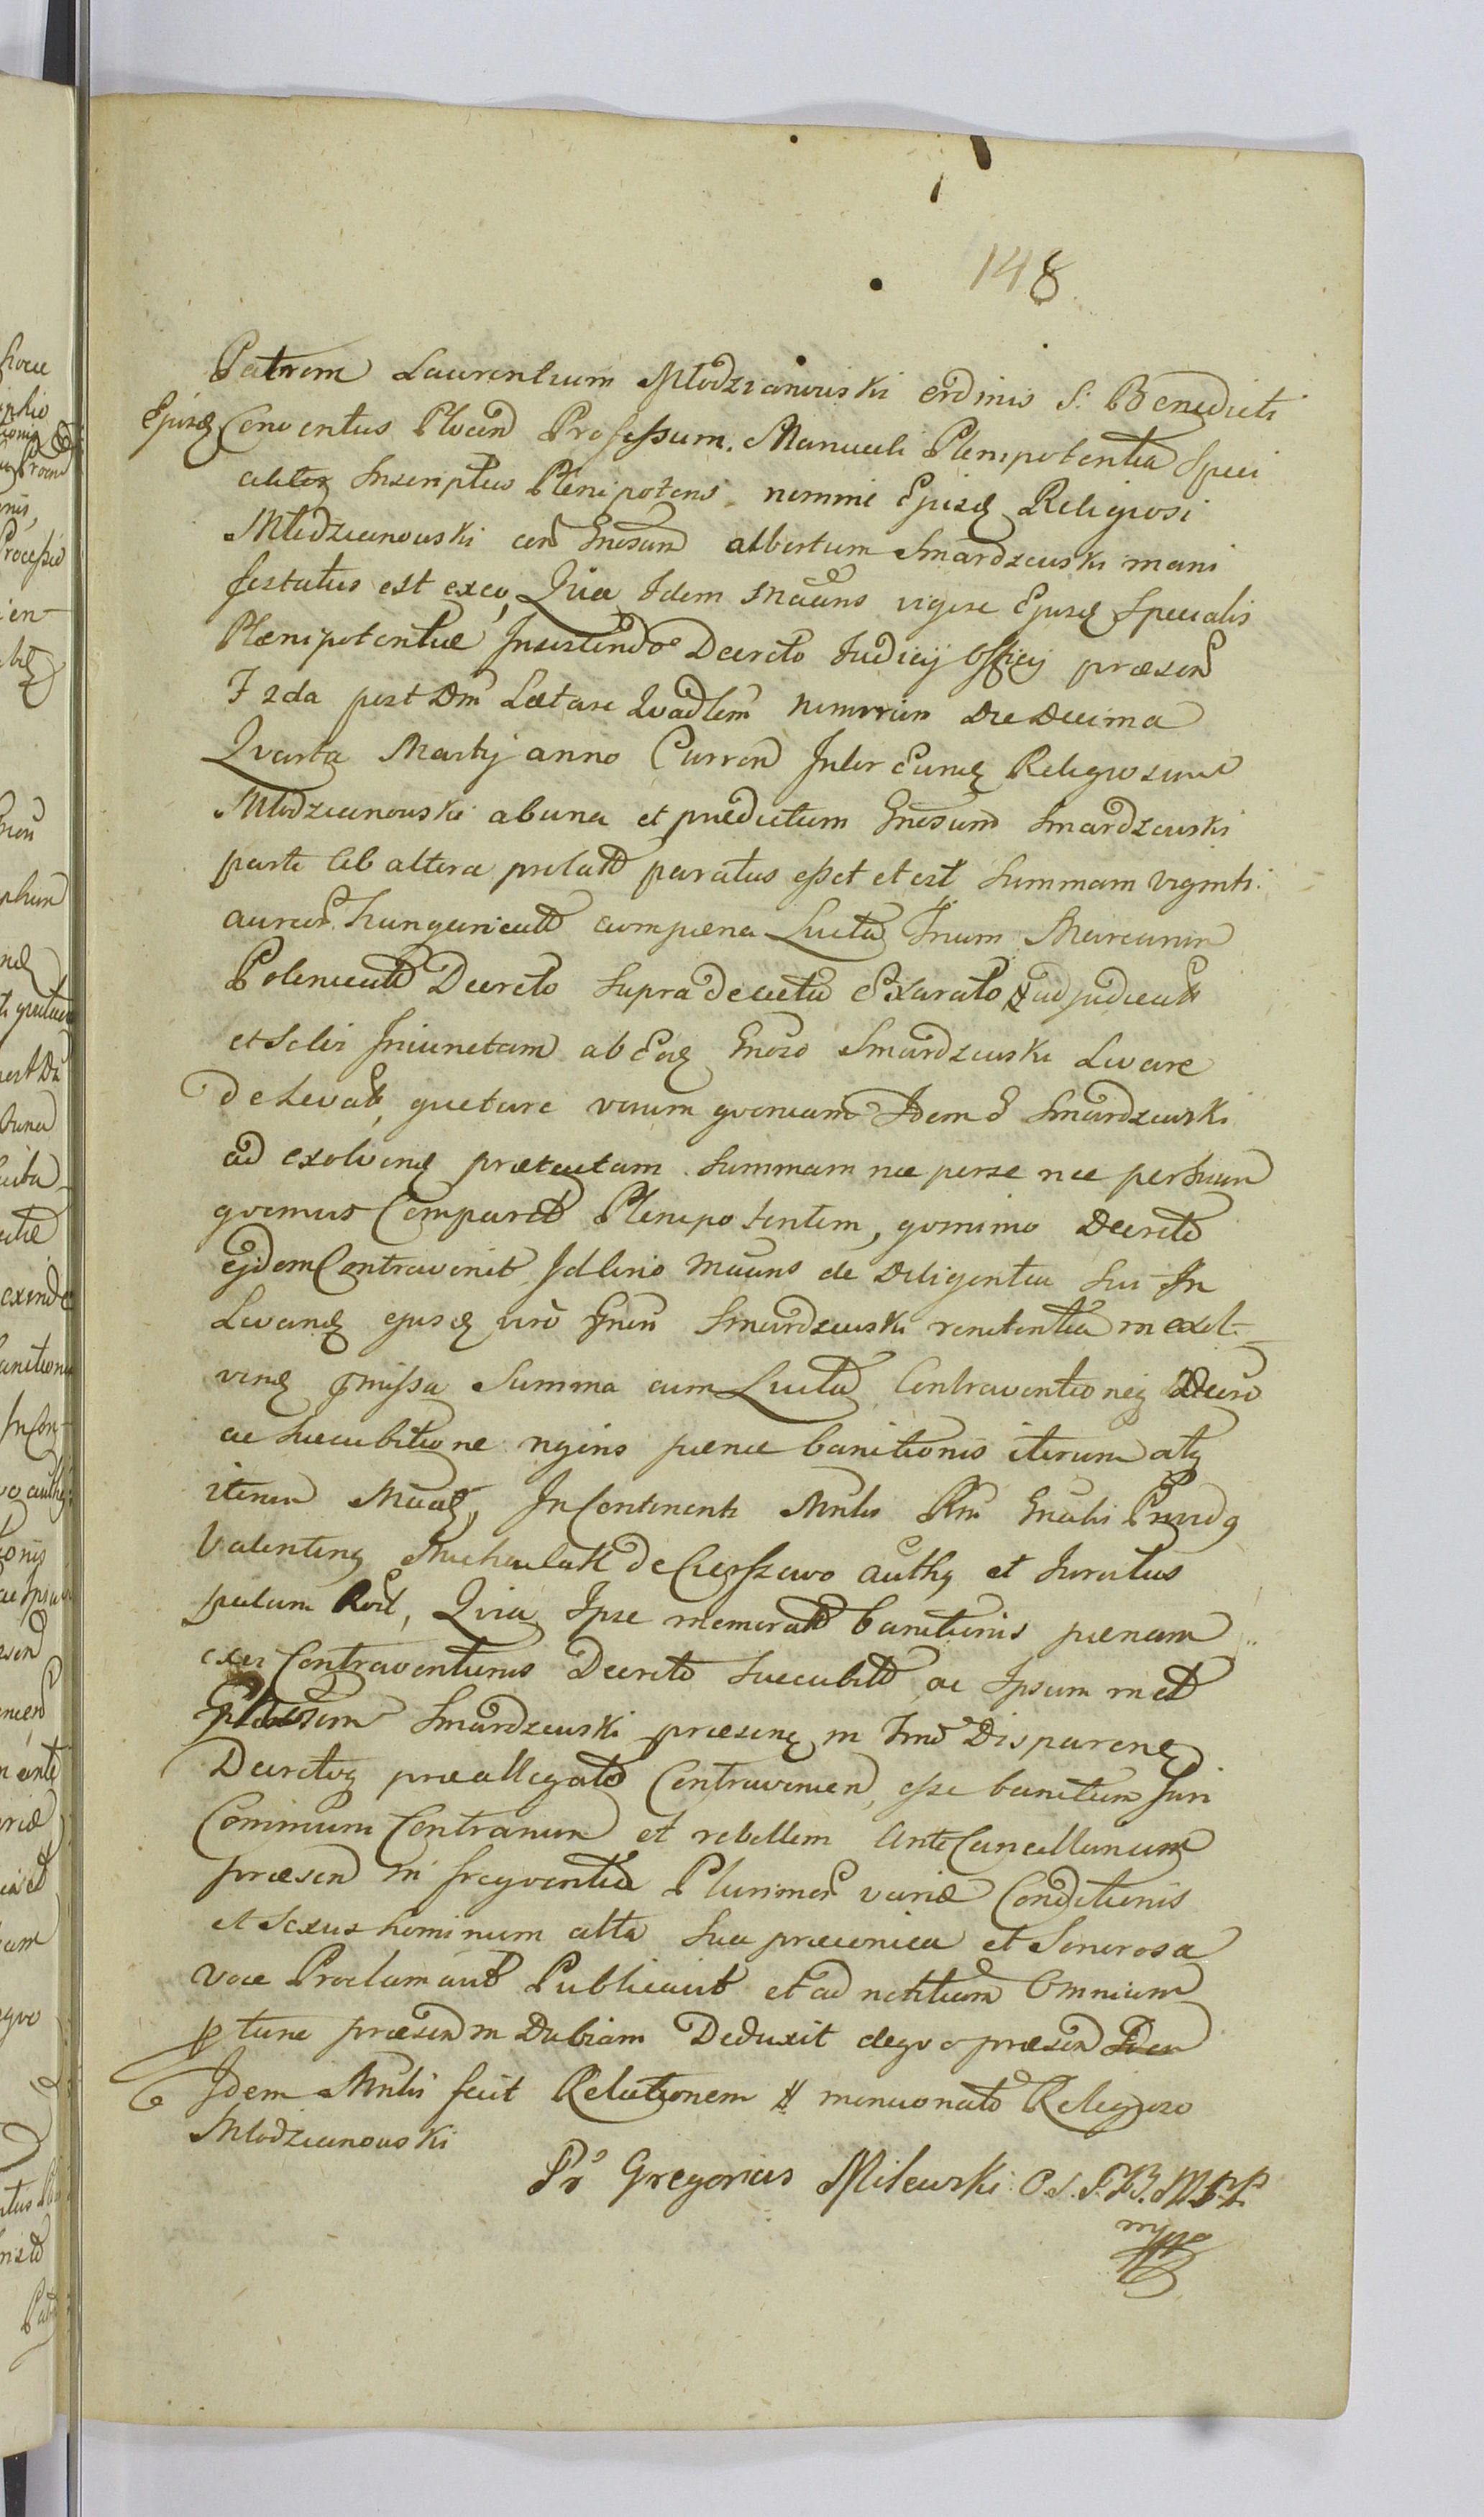 148
Patrem Laurentium Młodzianowski ordinis S. Benedicti
Ejusq Conventus Plocen Professum. Manuali Plenipotentia Speci
aliter Inscriptus Plenipotens nomine Ejusq Religiosi
Młodzianowski con Gnosum Albertum Smardzewski mani
festatus est exeo, Qvia Idem Mãans vigore Ejusq Specialis
Plenipotentiae Insistendo Decreto Iudicij Officij præsen
F 2da post Dm Lætare Qvadlem nimirum Die Decima
Qvarta Martij anno Curren Inter Eunq Religiosum
Młodzianowski ab una et prædictum Gnosum Smardzewski
parte ab altera prolato paratus esset et est Summam viginti
aureor Hungaricalt cum pæna Lucta Trium Marcarum
Polonicalt Decreto supra de actu Exarato adjudicat
et Solvi Iniunctam ab Eoq Gnoso Smardzewski Levare
De Levat, quetare verum qvoniam Idem G Smardzewski
ad exolvenq prætactam Summam nec per se nec per suum
qvemvis Comparuit Plenipotentem, qvinimo Decreto
ejdem Contravenit Id circo Mãans de Diligentia sui In
Levanq ejusq vero Gnosi Smardzewski renitentia in exol-
venq præmissa Summa cum Lucta Contraventioneq Decreto
ac succubitione ngius pænæ banitionis iterum atq
iterum Mãatq, In Continenti Mnlis Rni Gnalis Prvidq
Valentinq Michalak de Ciersżewo authq et Iuratus
palam Recit, Qvia Ipse memorato banitionis pænam
exex Contraventionis Decreto Succubito ac Ipsum met
Gnosum Smardzewski præsenq in Tmo Disparenq
Decretoq præallegato Contravenien, esse banitum Iuri
Communi Contrarium et rebellem ante Cancellariam
præsen in freqventia Plurimor variæ Conditionis
et Sexus hominum alta sua præconica et Sonorosa
voce Proclamavit Publicavit et ad notitiam Omnium
tunc præsen in Dubiam Deduxit deqvo præsen
Idem Mnlis fecit Relationem mencionato Religioso
Młodzianowski
Pr Gregorius Milewski O.S.P.B.M.P.P.
mpp